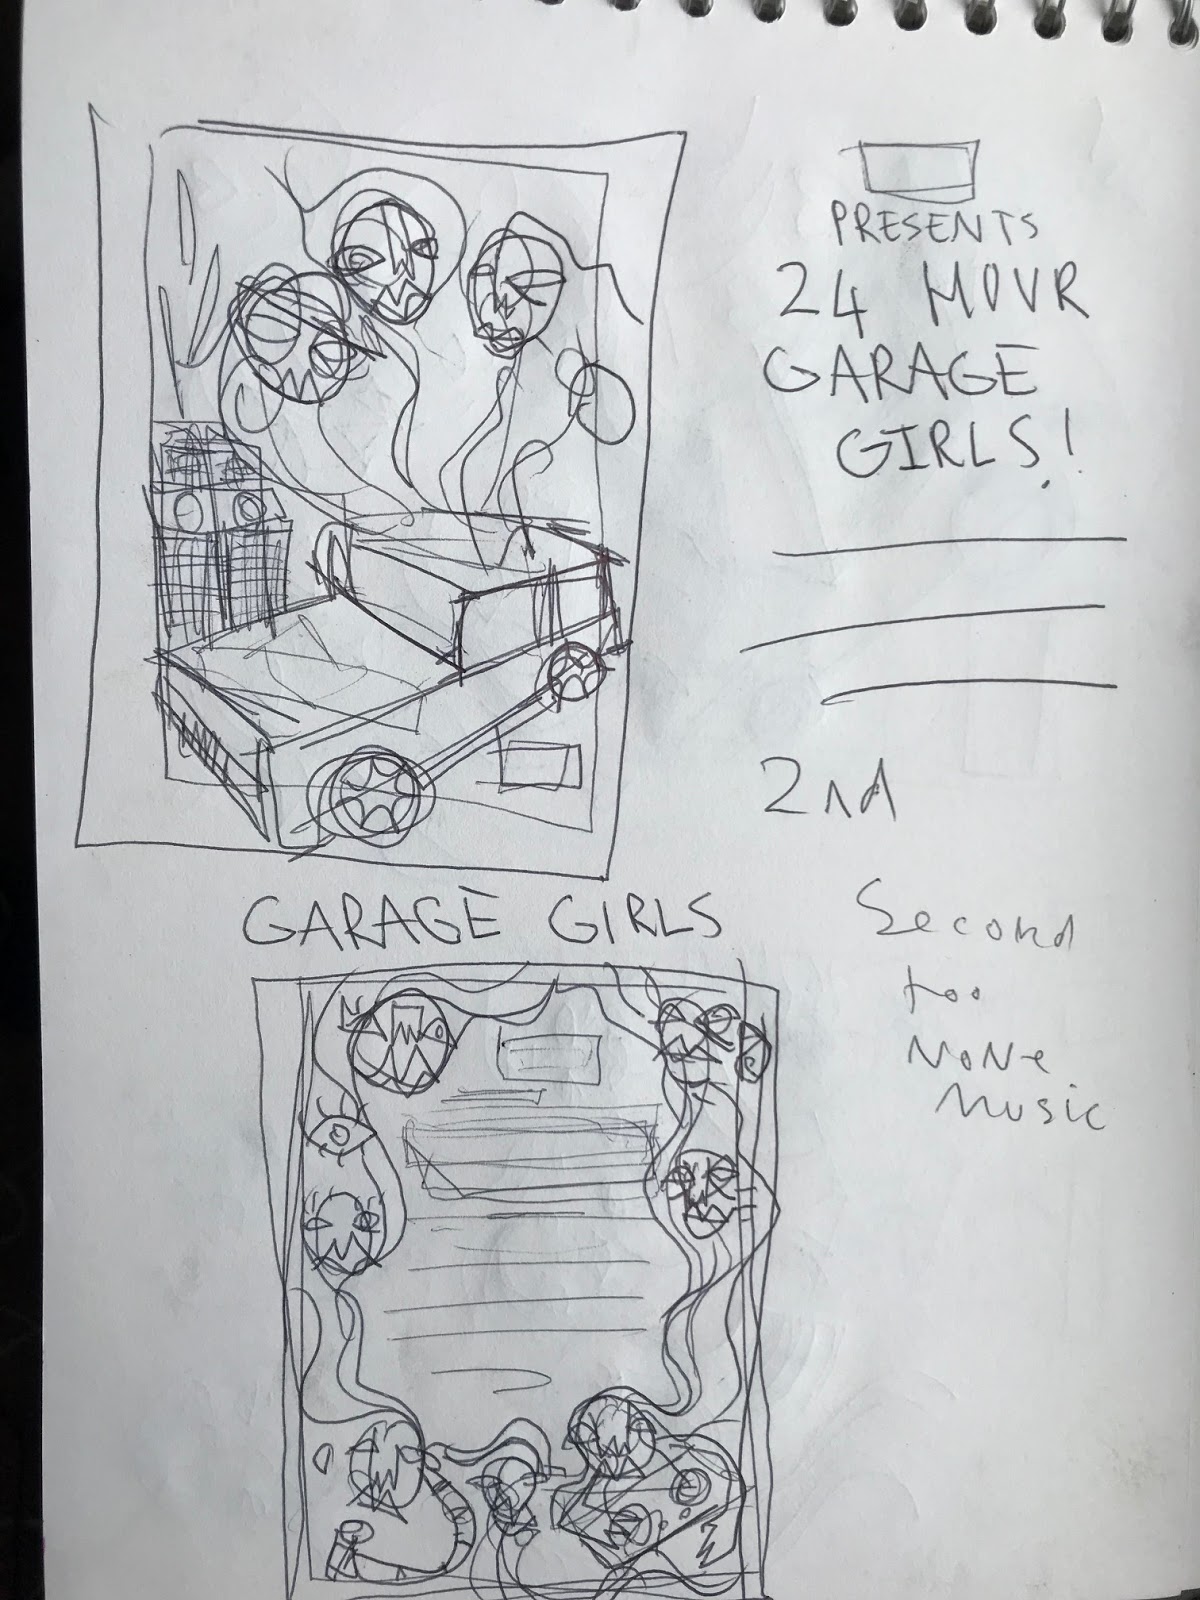 PRESENTS
24 HOUR
GARAGE
GIRLS!
2nd
Second
too
None
Music
GARAGE GIRLS